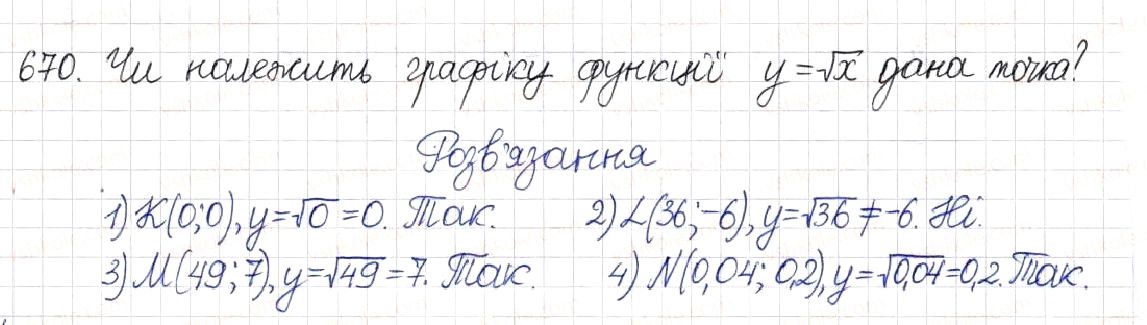 670. Чи належить графіку функції y=√x дана точка?
Розв'язання
1) K(0;0), y=√0=0. Так. 2) L(36;-6), y=√36≠-6. Ні.
3) M(49;7), y=√49=7. Так. 4) N(0,04; 0,2), y=√0,04=0,2. Так.